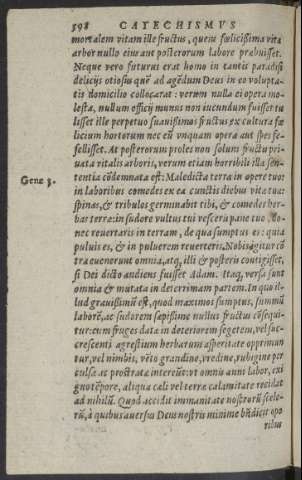 598 CATECHISMVS
mortalem vitam ille fructus, quem fœlicißima vitæ
arbor nullo eius aut posterorum labore præbuisset.
Neque vero futurus erat homo in tantis paradisi
delicijs otiosus quē ad agēdum Deus in eo volupta-
tis domicilio collocarat: verum nulla ei opera mo-
lesta, nullum officij munus non iucundum fuisset tu
lisset ille perpetuo suauißimos fructus ex cultura fœ
licium hortorum nec eū vnquam opera aut spes fe-
fellisset. At posterorum proles non solum fructu pri-
uata vitalis arboris, verum etiam horribili illa sen-
Gene 3. tentia cōdemnata est: Maledicta terra in opere tuo:
in laboribus comedes ex ea cunctis diebus vitæ tuæ:
spinas, & tribulos germinabit tibi, & comedes her-
bas terræ: in sudore vultus tui vesceris pane tuo, do-
nec reuertaris in terram, de qua sumptus es: quia
puluis es, & in puluerem reuerteris. Nobis igitur cō
tra euenerunt omnia, atq, illi & posteris contigisset,
si Dei dicto audiens fuisset Adam. Itaq, versa sunt
omnia & mutata in deterrimam partem. In quo il-
lud grauißimū est, quod maximos sumptus, summū
laborē, ac sudorem sæpißime nullus fructus cōsequi-
tur: cum fruges datæ in deteriorem segetem, vel suc-
crescenti agrestium herbarum asperitate opprimun
tur, vel nimbis, vēto grandine, vredine, rubigine per
culsæ ac prostratæ intereūt: vt omnis anni labor, exi
guo tēpore, aliqua cæli vel terræ calamitate recidat
ad nihilū. Quod accidit immanitate nostrorū scele-
rū, à quibus auersus Deus nostris minime bñdicit ope
ribus